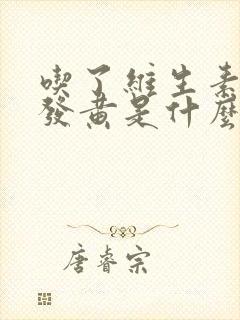 喫了維生素
發黃是什麼
唐睿宗